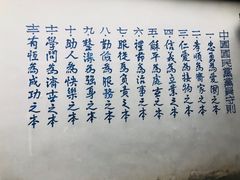 中國國民黨黨員守則
一、忠勇為愛國之本
二、孝順為齊家之本
三、仁愛為接物之本
四、信義為立業之本
五、平為處世之本
六、禮節為治事之本
七、服從為負責之本
八、勤儉為服務之本
九、整潔為強身之本
十、助人為快樂之本
十一、學問為濟世之本
十二、有恆為成功之本